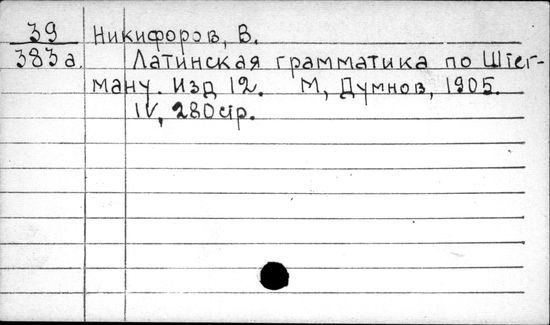 39 Никифоров, В.
383а. Латинская грамматика по Штег-
ману. Изд 12. М, Думнов, 1905.
IV, 280стр.